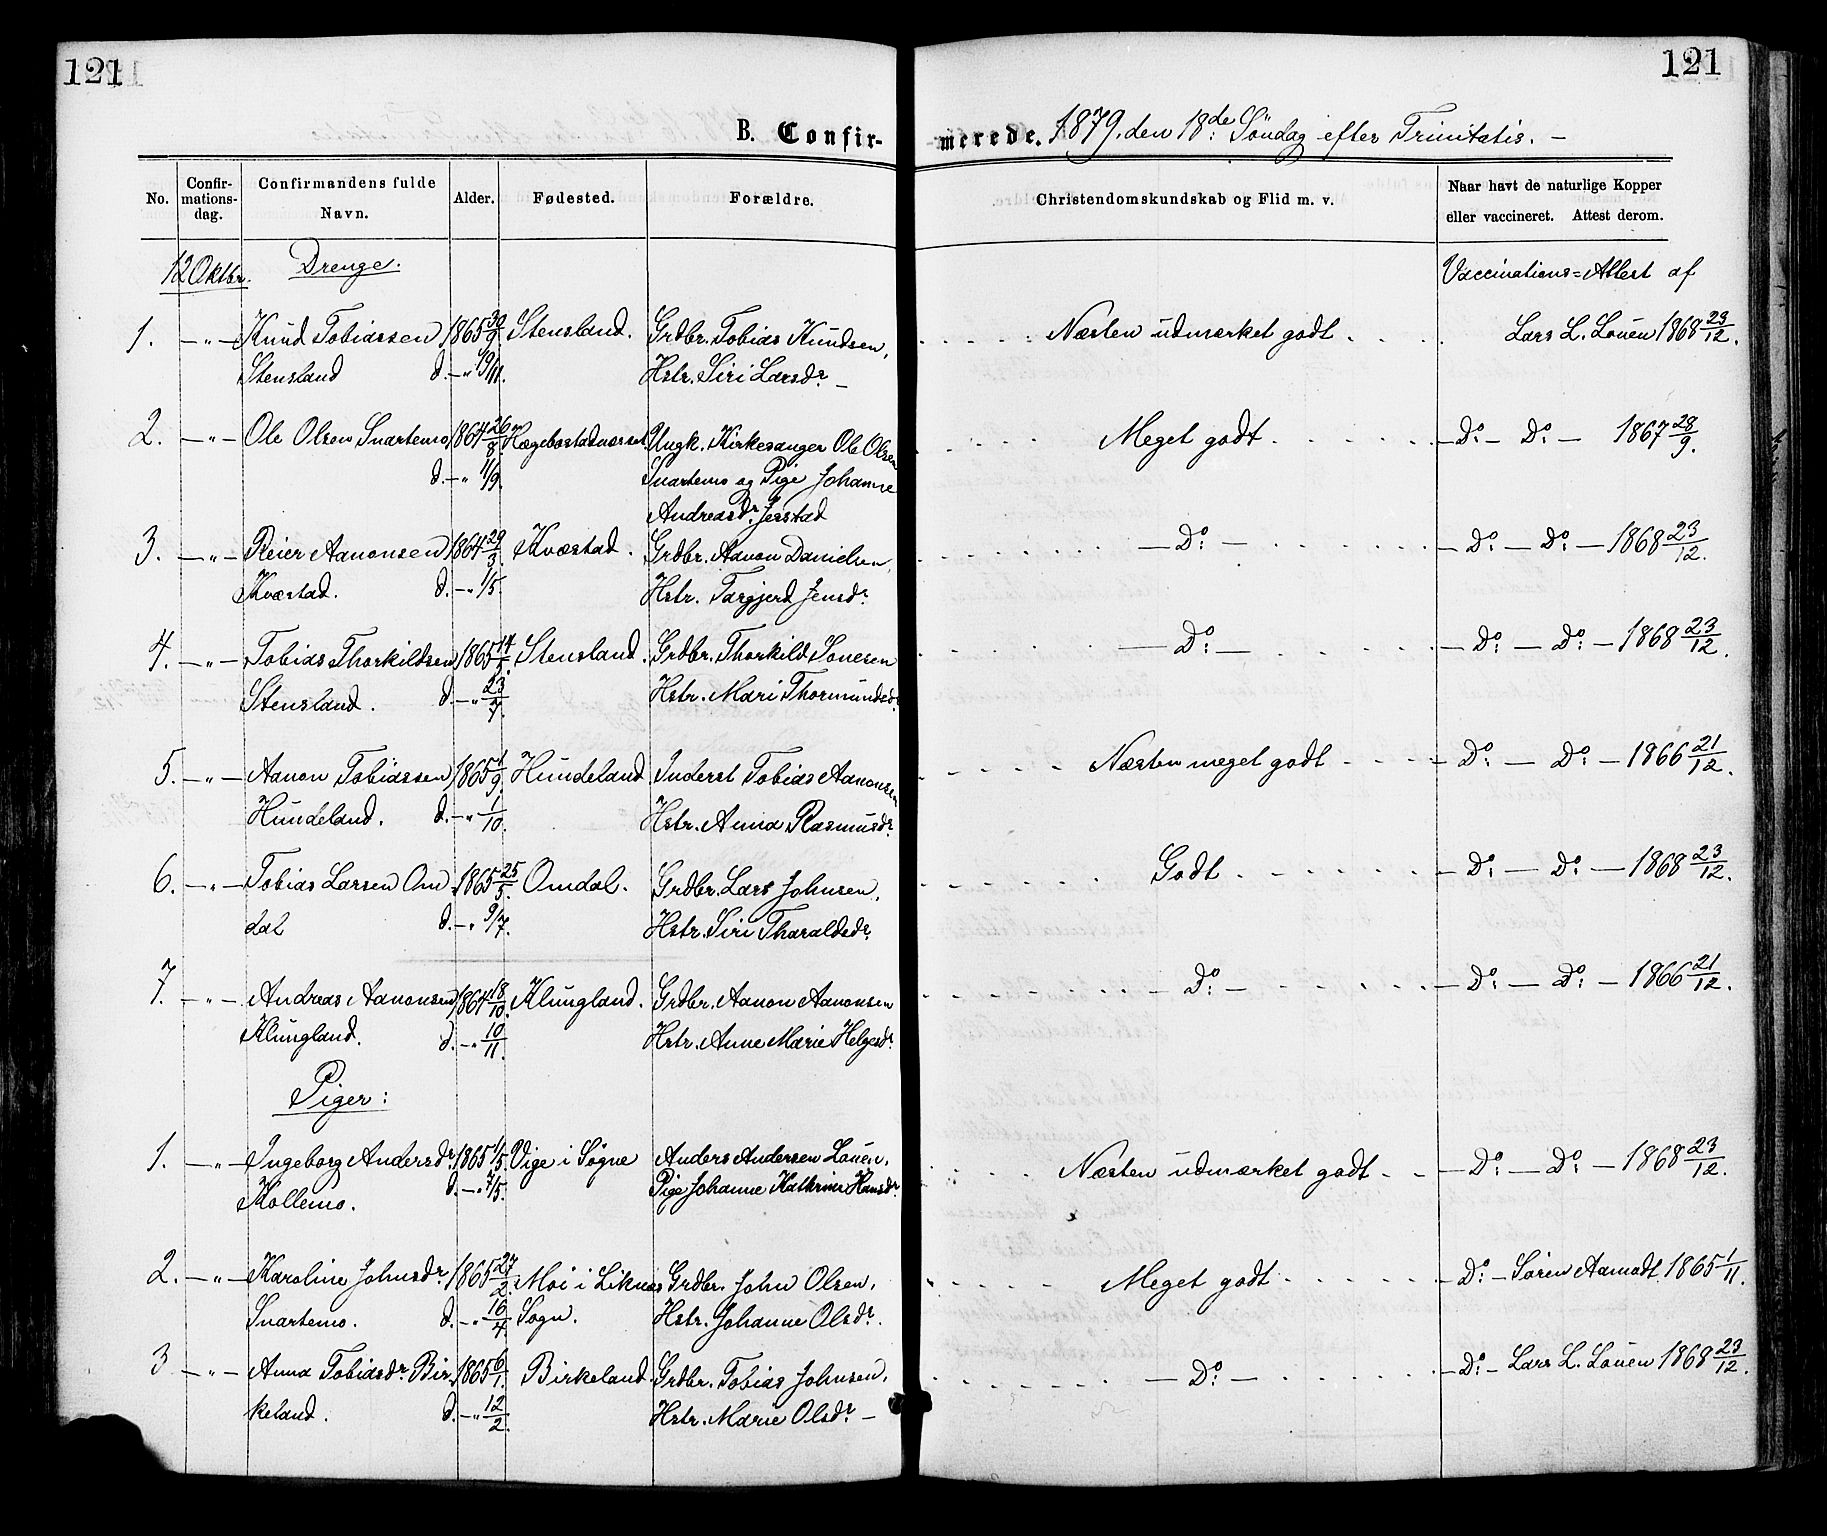 121
121
B. Confir-
merede. 1879. den 18de: Söndag efter Trinitatis. —
No.
Confir-
mations-
dag.
Confirmandens fulde
Navn.
Alder.
Fødested.
Forældre.
Christendomskundskab og Flid m. v.
Naar havt de naturlige Kopper
eller vaccineret. Attest derom.
12 Oktbr. Drenge.
Vaccinations=Attest af
1. —"— Knud Tobiassen 1865 30/9 Stensland. Grdbr. Tobias Knudsen, Næsten udmærket godt Lars L. Louen 1868 23/12.
Stensland d. —" 19/11. Hstr. Siri Larsdr —
2. —"— Ole Olsen Snartemo 1864 26/8 Hægebostadnæsset Ungk. Kirkesanger Ole Olsen Meget godt —Do:— Do: — 1867 28/9.
d. —" 1/9. Snartemo og Pige Johanne
Andreasdr. Jerstad
3. —"— Reier Aanonsen 1864 29/3 Kvæstad. Grdbr. Aanon Danielsen, —Do: — — Do: — Do: — 1868 23/12.
Kvæstad. d. —" 1/5. Hstr. Targjerd Jensdr
4. —"— Tobias Thorkildsen 1865 14/5 Stensland. Grdbr. Thorkild Sonesen —Do:— — Do: — Do: — 1868 23/12.
Stensland. d. —" 23/7. Hstr. Mari Thormundsdr.
5. —"— Aanon Tobiassen 1865 1/9. Hundeland Inderst Tobias Aanonsen Næsten meget godt — Do: — Do: — 1866 21/12.
Hundeland. d. —" 1/10. Hstr. Anna Rasmusdr
6. —"— Tobias Larsen Om 1865 25/5. Omdal. Grdbr. Lars Johnsen, Godt — Do: — Do: — 1868 23/12.
dal d. —" 9/7. Hstr. Siri Tharaldsdr.
7. —"— Andreas Aanonsen 1864 18/10. Klungland. Grdbr. Aanon Aanonsen —Do: — — Do: — Do: — 1866 21/12.
Klungland. d. —" 10/11. Hstr. Anne Marie Helgesdr
Piger:
1. —"— Ingeborg Andersdr. 1865 1/5. Vige i Søgne Anders Andersen Louen, Næsten udmærket godt — Do: — Do: — 1868 23/12.
Kollemo. d. —" 7/5. Pige Johanne Kathrine Hansdr.
2. —"— Karoline Johnsdr. 1865 27/2. Moi i Liknes Grdbr. John Olsen, Meget godt — Do: — Sören Aamodt 1865 1/11.
Snartemo. d. —" 16/4. Sogn. Hstr. Johanne Olsdr.
3 —"— Anna Tobiasdr. Bir 1865 6/1. Birkeland Grdbr. Tobias Johnsen, — Do: — — Do: — Lars L. Louen 1868 23/12.
keland. d. —" 12/2. Hstr. Marie Olsdr. —